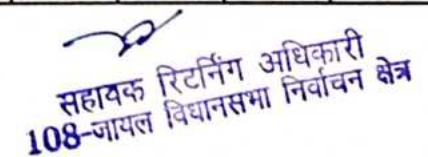 सहायक रिटर्निंग अधिकारी
108-जायल विधानसभा निर्वाचन क्षेत्र